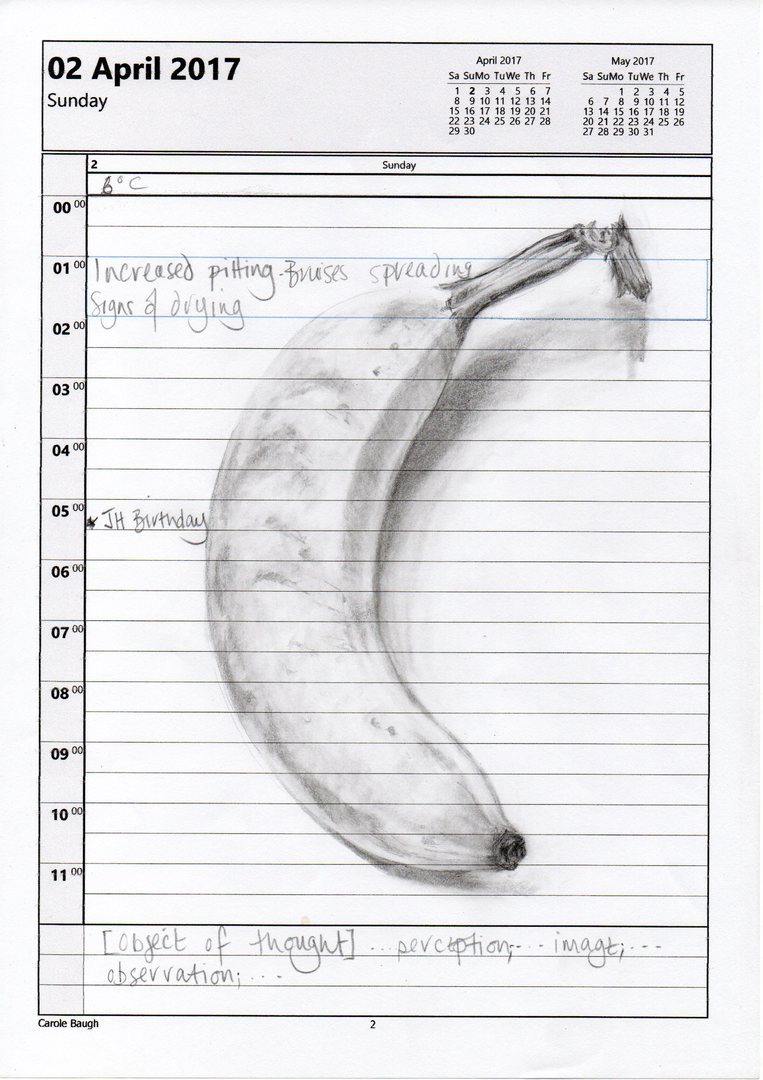 02 April 2017
Sunday
April 2017
Sa SuMo TuWe Th Fr
1 2 3 4 5 6 7
8 9 10 11 12 13 14
15 16 17 18 19 20 21
22 23 24 25 26 27 28
29 30
May 2017
Sa SuMo TuWe Th Fr
1 2 3 4 5
6 7 8 9 10 11 12
13 14 15 16 17 18 19
20 21 22 23 24 25 26
27 28 29 30 31
2 Sunday
6°C
00 00
01 00 Increased pitting. Bruises spreading
Signs of drying
02 00
03 00
04 00
05 00
JH Birthday
06 00
07 00
08 00
09 00
10 00
11 00
[object of thought] ... perception;... image;...
observation;...
Carole Baugh 2